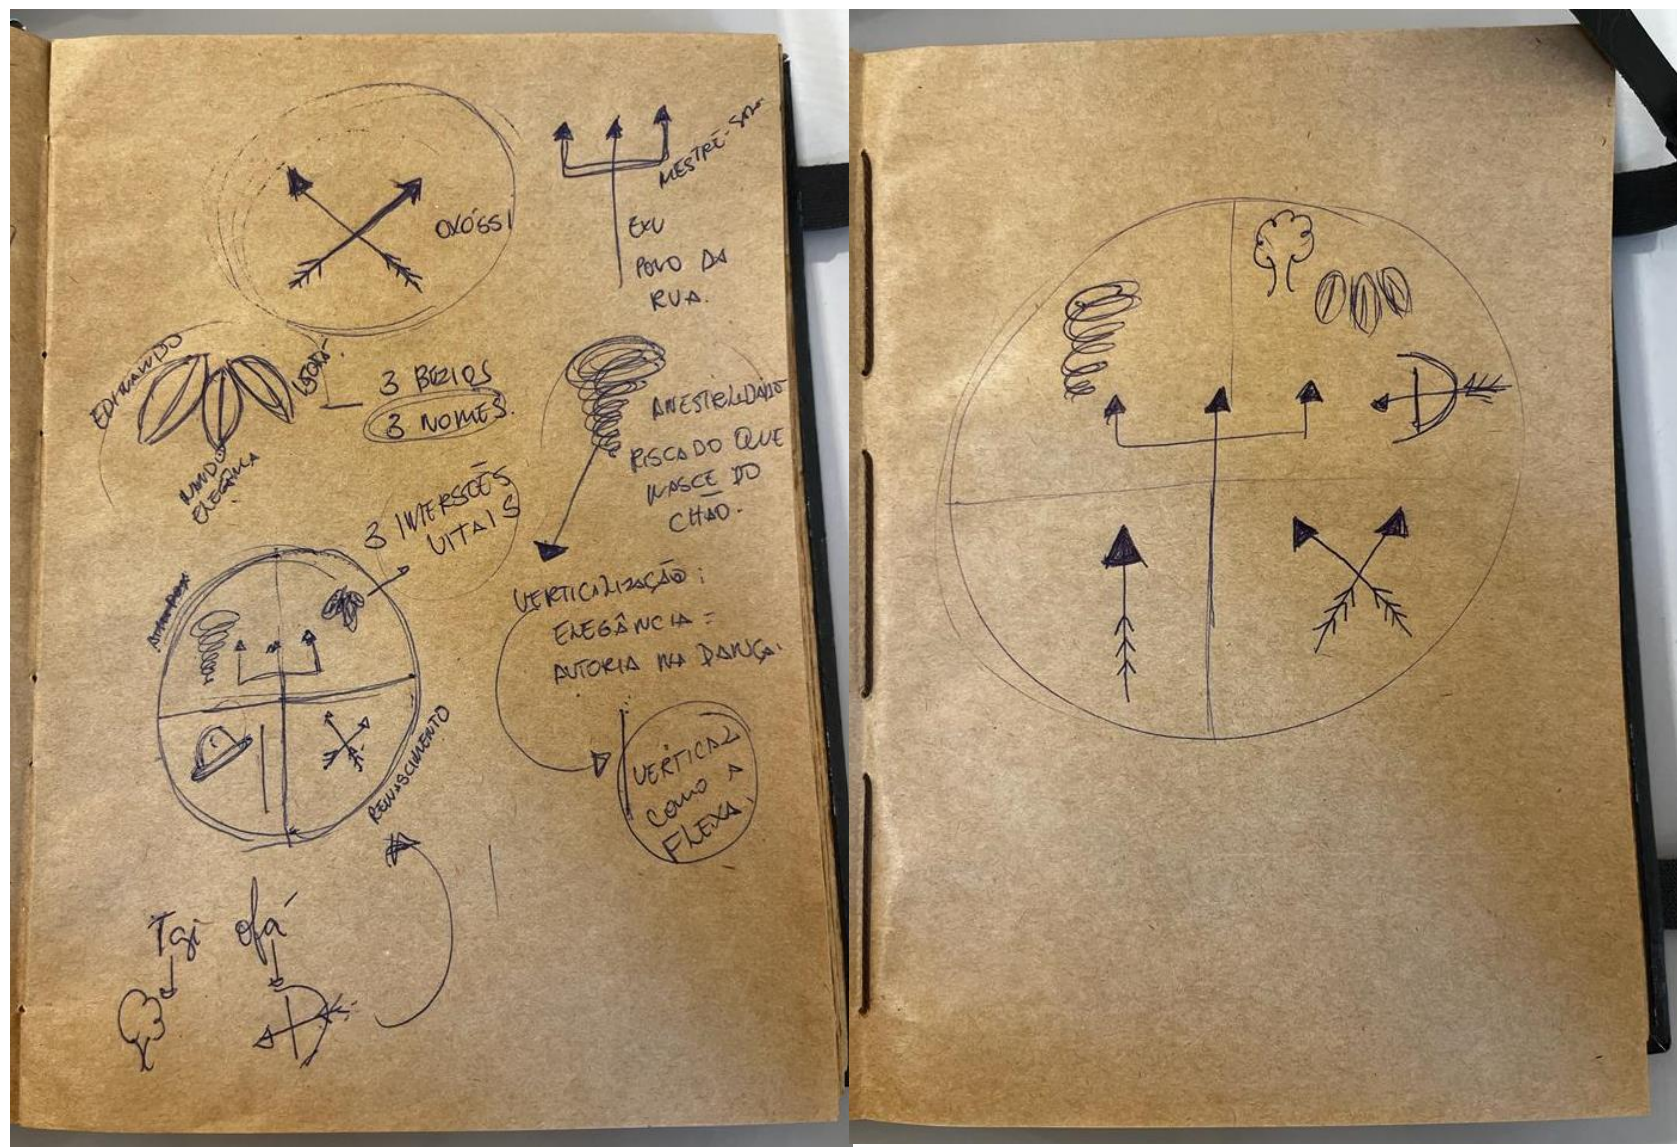 OXÓSSI
MESTRE-SALA
EXU
POVO DA
RUA.
EDINANDO
3 BÚZIOS
3 NOMES.
NANDO
ELEGÂNCIA
ANCESTRALIDADE
RISCADO QUE
NASCE DO
CHÃO.
3 IMERSÕES
VITAIS
VERTICALIZAÇÃO:
ELEGÂNCIA =
AUTORIA NA DANÇA.
RENASCIMENTO
VERTICAL
COMO A
FLEXA.
Igi ofá